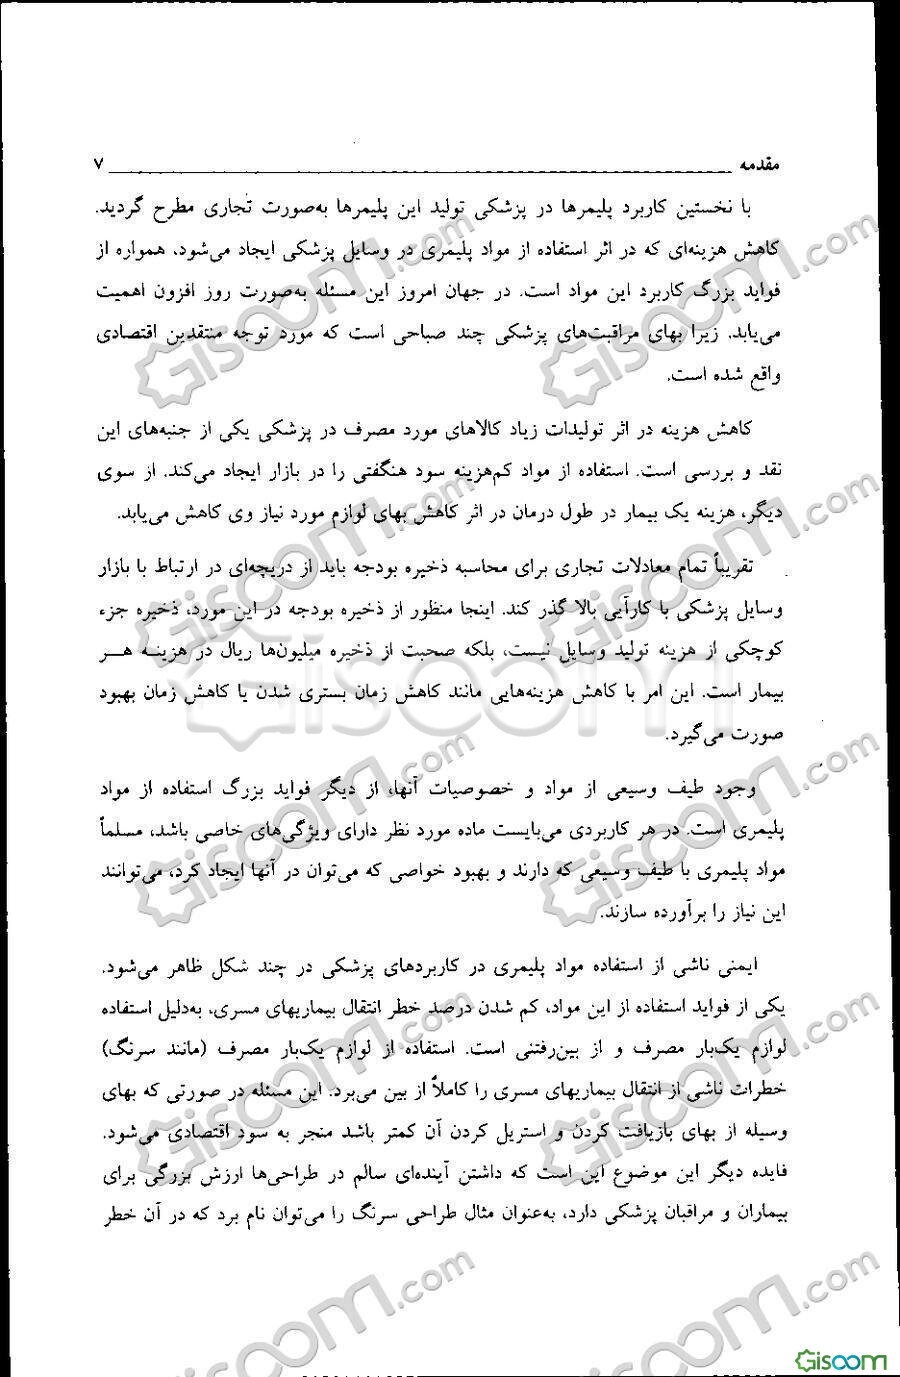 مقدمه ۷
با نخستین کاربرد پلیمرها در پزشکی تولید این پلیمرها به‌صورت تجاری مطرح گردید.
کاهش هزینه‌ای که در اثر استفاده از مواد پلیمری در وسایل پزشکی ایجاد می‌شود، همواره از
فواید بزرگ کاربرد این مواد است. در جهان امروز این مسئله به‌صورت روز افزون اهمیت
می‌یابد. زیرا بهای مراقبت‌های پزشکی چند صباحی است که مورد توجه منتقدین اقتصادی
واقع شده است.
کاهش هزینه در اثر تولیدات زیاد کالاهای مورد مصرف در پزشکی یکی از جنبه‌های این
نقد و بررسی است. استفاده از مواد کم‌هزینه سود هنگفتی را در بازار ایجاد می‌کند. از سوی
دیگر، هزینه یک بیمار در طول درمان در اثر کاهش بهای لوازم مورد نیاز وی کاهش می‌یابد.
تقریباً تمام معادلات تجاری برای محاسبه ذخیره بودجه باید از دریچه‌ای در ارتباط با بازار
وسایل پزشکی با کارآیی بالا گذر کند. اینجا منظور از ذخیره بودجه در این مورد، ذخیره جزء
کوچکی از هزینه تولید وسایل نیست، بلکه صحبت از ذخیره میلیون‌ها ریال در هزینه هر
بیمار است. این امر با کاهش هزینه‌هایی مانند کاهش زمان بستری شدن یا کاهش زمان بهبود
صورت می‌گیرد.
وجود طیف وسیعی از مواد و خصوصیات آنها، از دیگر فواید بزرگ استفاده از مواد
پلیمری است. در هر کاربردی می‌بایست ماده مورد نظر دارای ویژگی‌های خاصی باشد، مسلماً
مواد پلیمری با طیف وسیعی که دارند و بهبود خواصی که می‌توان در آنها ایجاد کرد، می‌توانند
این نیاز را برآورده سازند.
ایمنی ناشی از استفاده مواد پلیمری در کاربردهای پزشکی در چند شکل ظاهر می‌شود.
یکی از فواید استفاده از این مواد، کم شدن درصد خطر انتقال بیماریهای مسری، به‌دلیل استفاده
لوازم یک‌بار مصرف و از بین‌رفتنی است. استفاده از لوازم یک‌بار مصرف (مانند سرنگ)
خطرات ناشی از انتقال بیماریهای مسری را کاملاً از بین می‌برد. این مسئله در صورتی که بهای
وسیله از بهای بازیافت کردن و استریل کردن آن کمتر باشد منجر به سود اقتصادی می‌شود.
فایده دیگر این موضوع این است که داشتن آینده‌ای سالم در طراحی‌ها ارزش بزرگی برای
بیماران و مراقبان پزشکی دارد، به‌عنوان مثال طراحی سرنگ را می‌توان نام برد که در آن خطر
Gisoom